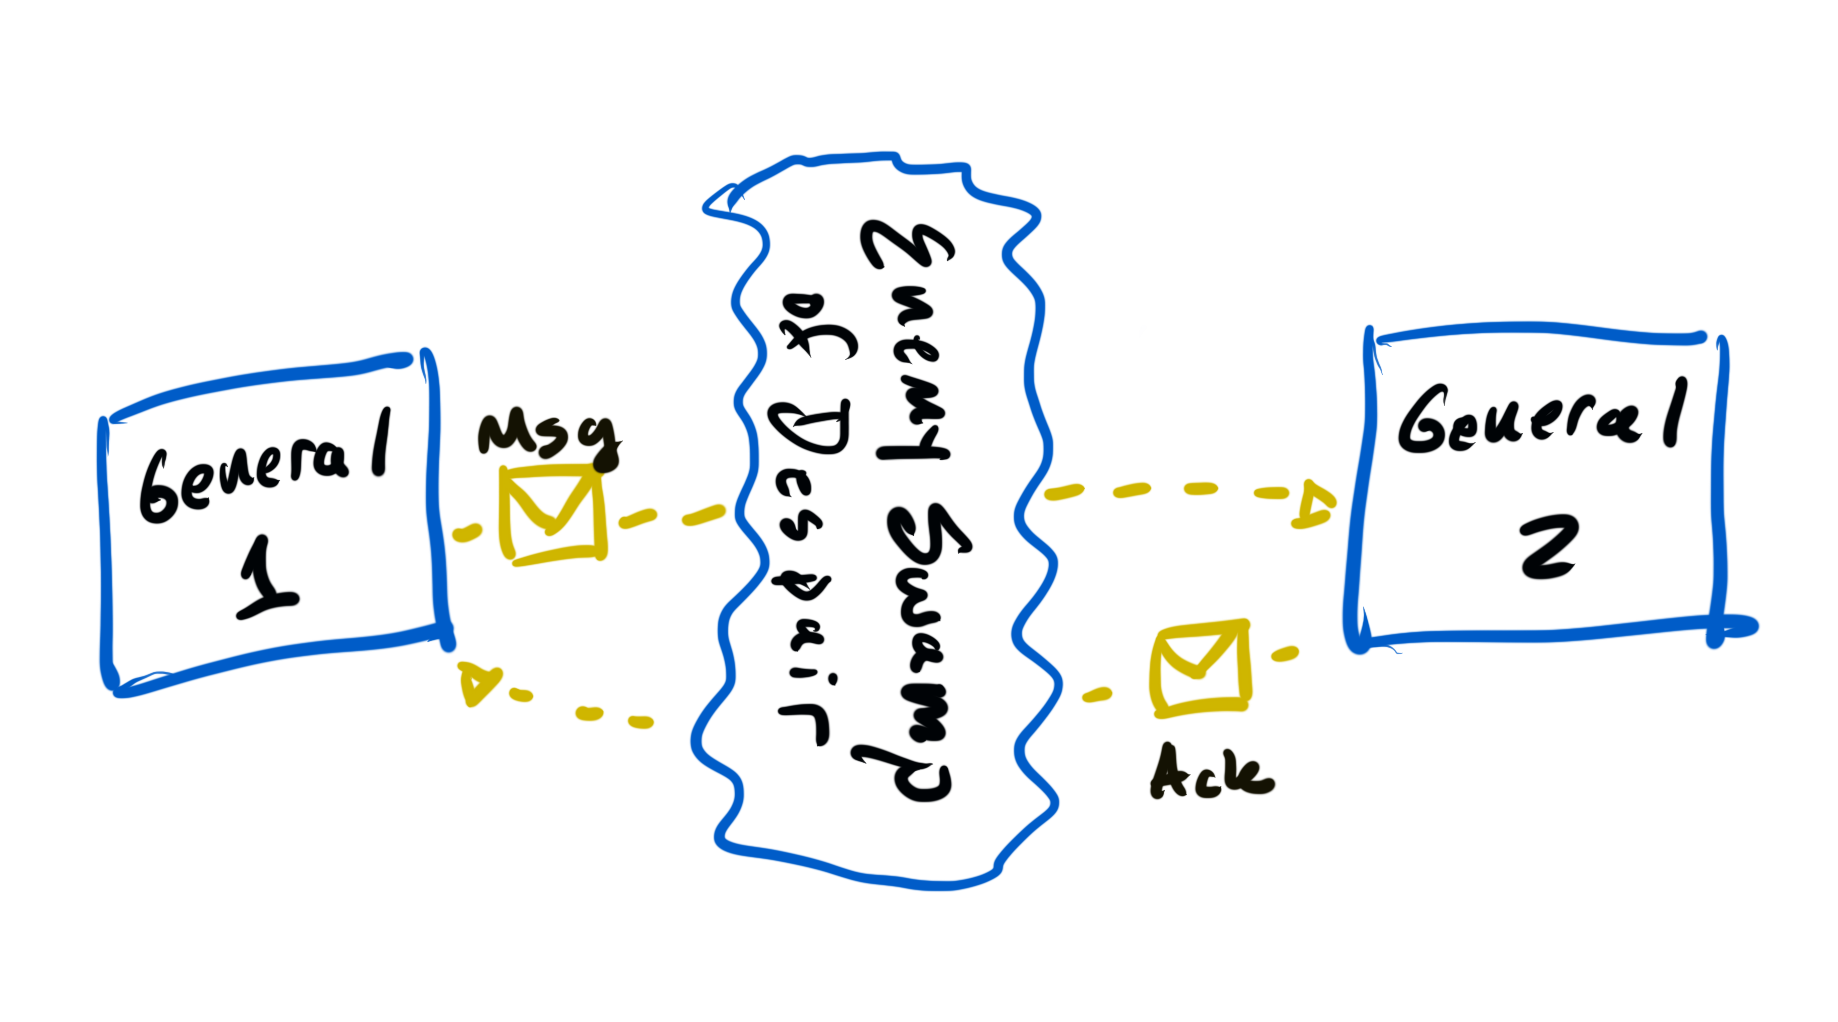 General
1
Msg
Enemy Swamp
of Despair
General
2
Ack